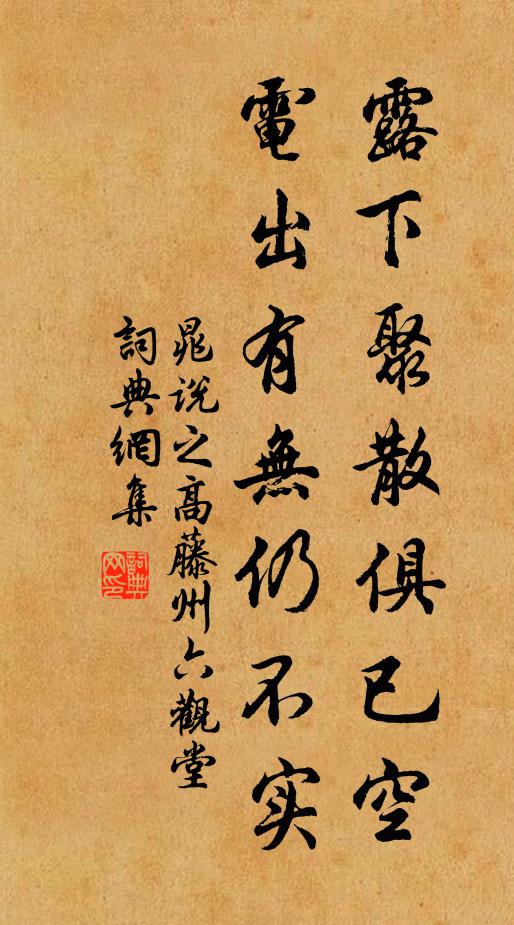 露下聚散俱已空
電出有無仍不实
晁說之高藤州六觀堂
詞典網集
詞典網印